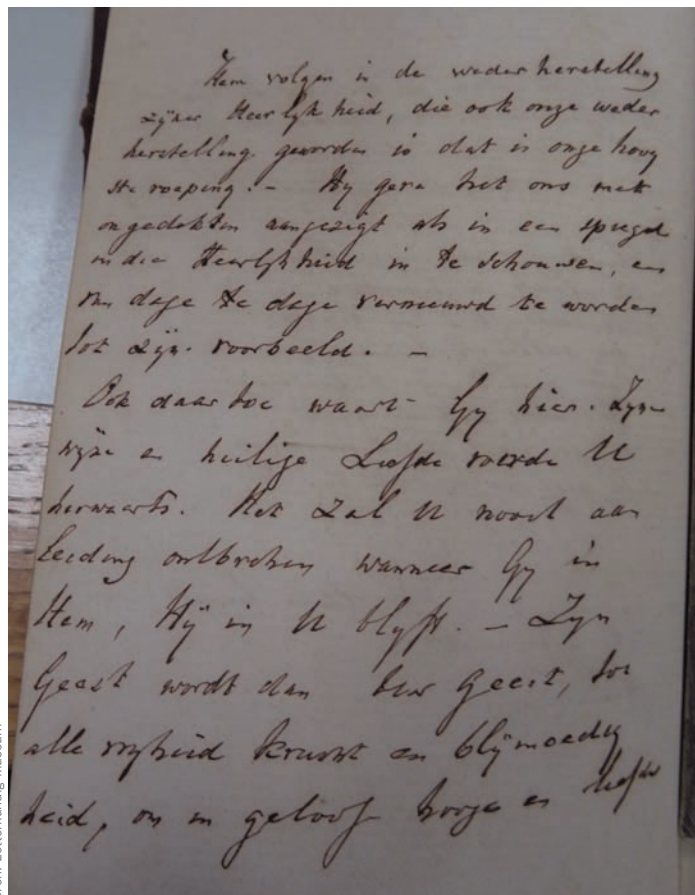 Hem volgen in de wederherstelling
zijner Heerlijkheid, die ook onze weder
herstelling geworden is dat is onze hoog
ste roeping. - Hy geve het ons met
ongedekten aangezigt als in een spiegel
in die Heerlijkheid in te schouwen, en
van dage te dage vernieuwd te worden
tot zijn voorbeeld. -
Ook daar toe waart Gy hier. Zyn
wijze en heilige Liefde voerde U
herwaarts. Het zal U nooit aan
leiding ontbreken wanneer Gy in
Hem, Hij in U blyft. - Zyn
Geest wordt dan Uw geest, tot
alle vryheid kracht en blijmoedig
heid, om in geloof hoope en liefde